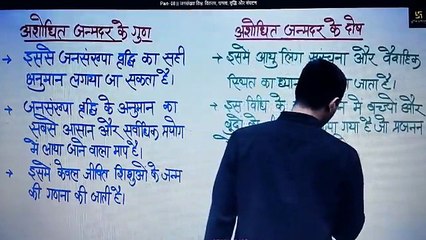 अशोधित जन्मदर के गुण
→ इससे जनसंख्या वृद्धि का सही
अनुमान लगाया जा सकता है।
→ जनसंख्या वृद्धि के अनुमान का
सबसे आसान और सर्वाधिक प्रयोग
में लाया जाने वाला माप है।
→ इसमें केवल जीवित शिशुओं के जन्म
की गणना की जाती है।
अशोधित जन्मदर के दोष
→ इसमें आयु लिंग और वैवाहिक
स्थिति का जाता है।
→ इस विधि के में बच्चों और
बूढ़ों गया है जो प्रजनन